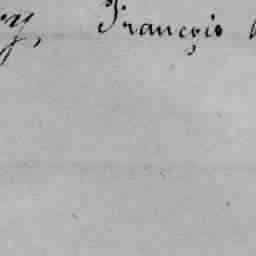 y, François